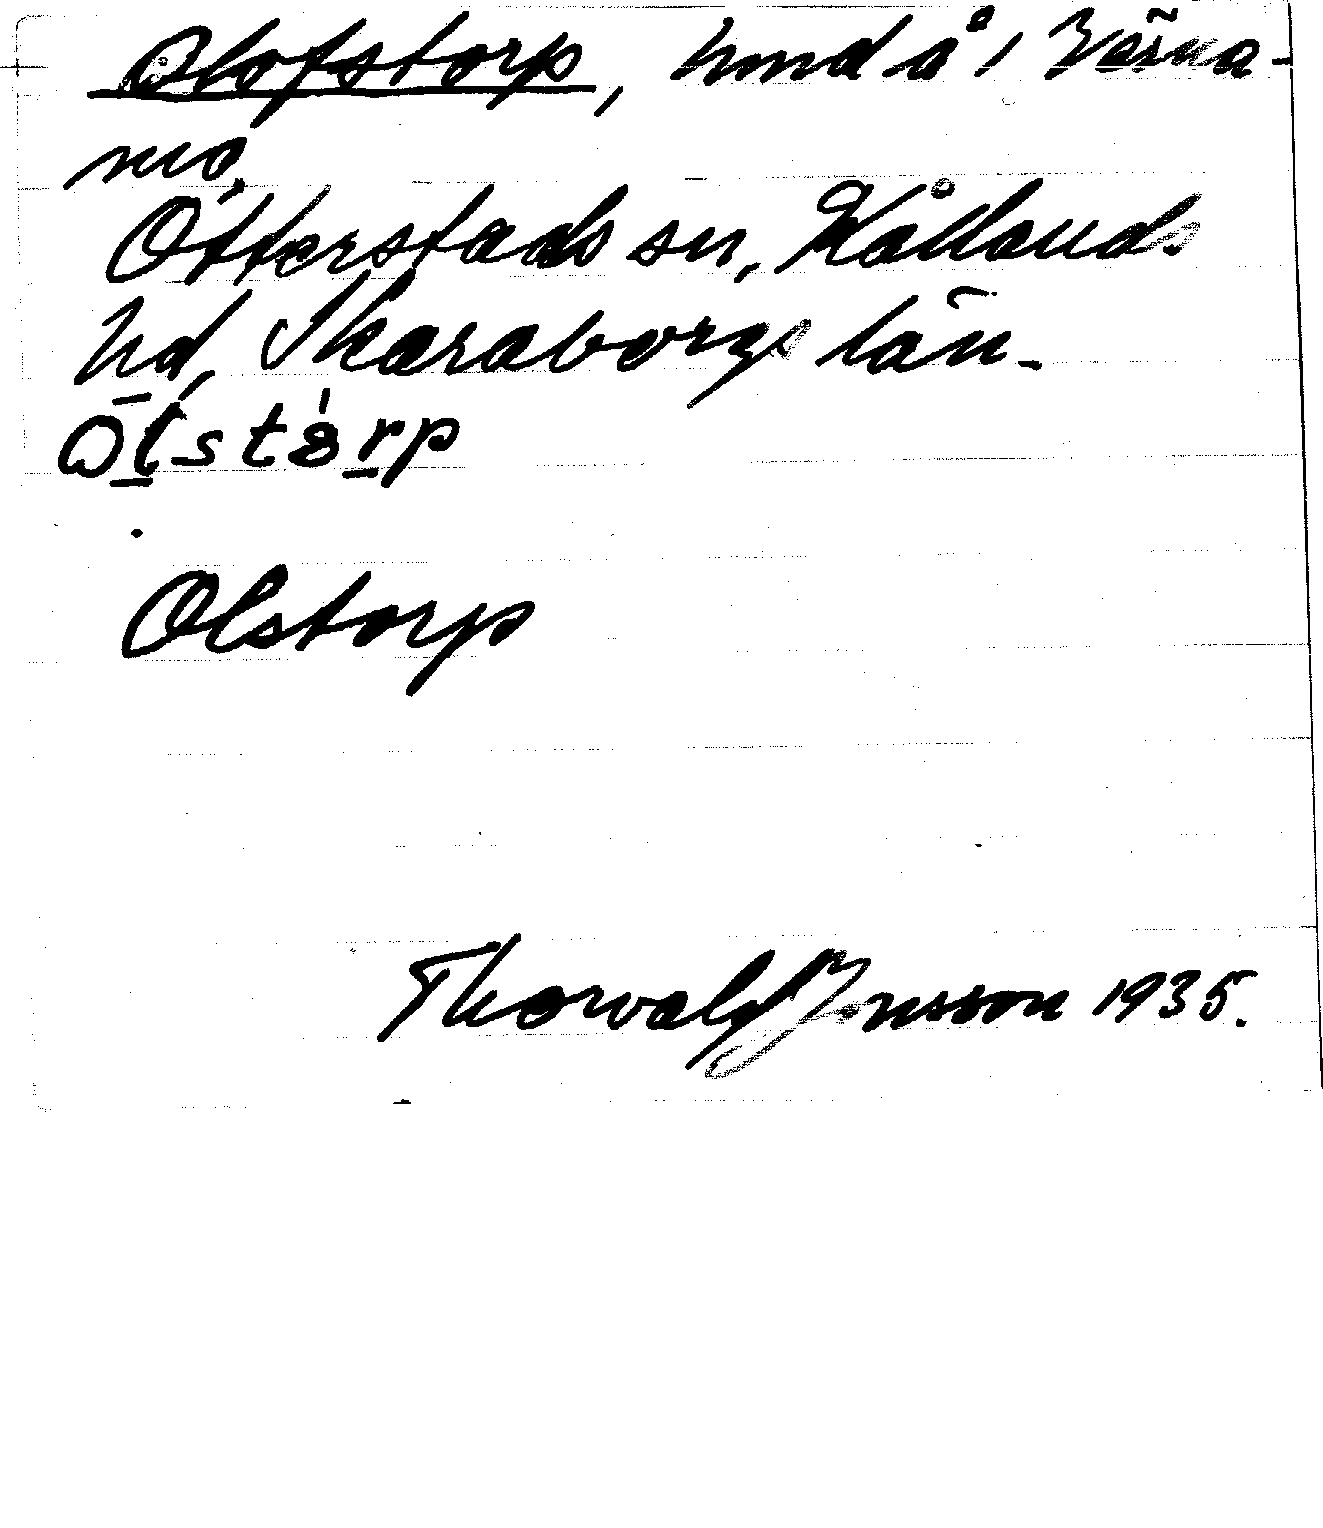 Olofstorp, hmd å 1 Värna-
mo,
Otterstads sn, Kållands
hd, Skaraborgs län.
ol̠stò̀r̠p
Olstorp
Thorvald Jonsson 1935.